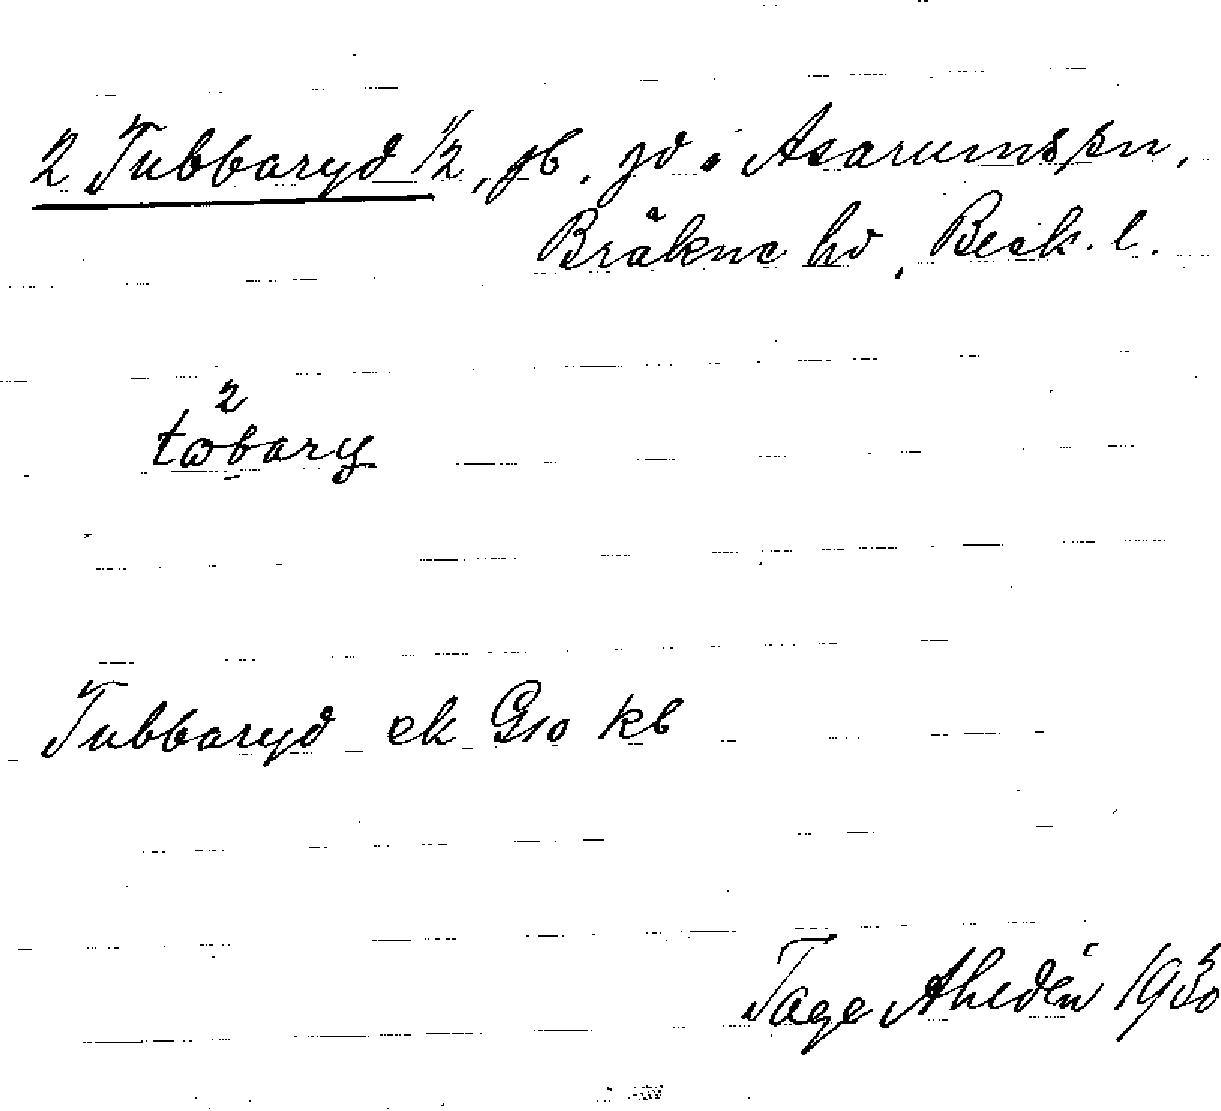 2 Tubbaryd 1/2, jb. jd. i Asarums sn,
Bräkne hd, Blek. l.
2
tωbary
Tubbaryd ek G10 kb
Tage Ahldén 1930